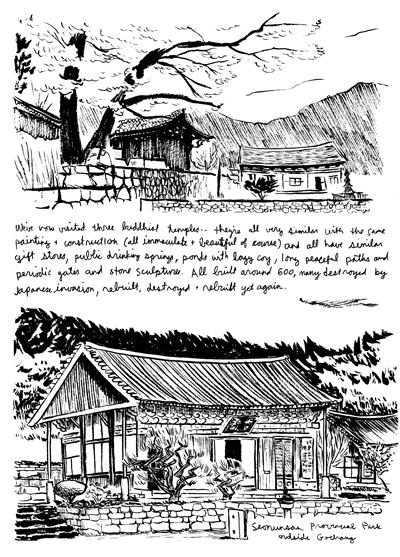 We've now visited three buddhist temples.. they're all very similar with the same
painting + construction (all immaculate + beautiful of course) and all have similar
gift stores, public drinking springs, ponds with lazy coy, long peaceful paths and
periodic gates and stone sculptures. All built around 600, many destroyed by
Japanese invasion, rebuilt, destroyed + rebuilt yet again.
Seonunsan Provincial Park
outside Gochang